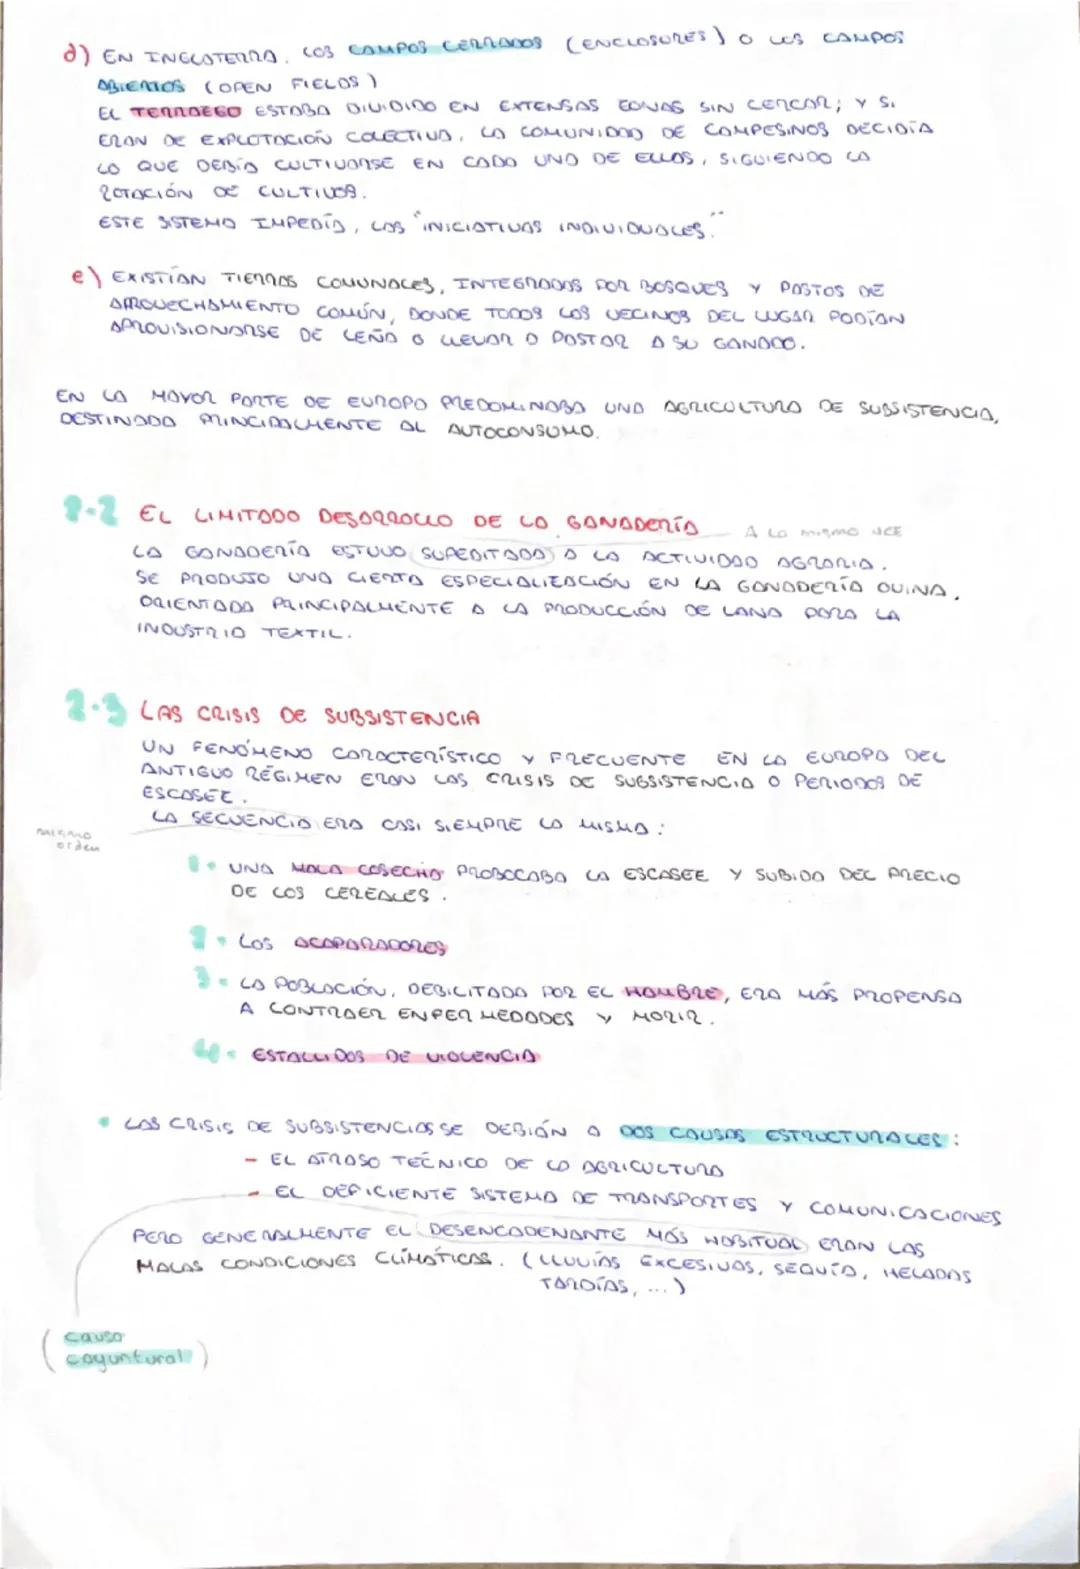 d) EN INGLATERRA, LOS CAMPOS CERRADOS (ENCLOSURES) O LOS CAMPOS
ABIERTOS (OPEN FIELDS)
EL TERRAEGO ESTABA DIVIDIDO EN EXTENSAS ZONAS SIN CERCAR; Y SI
ERAN DE EXPLOTACIÓN COLECTIVA, LA COMUNIDAD DE CAMPESINOS DECIDÍA
LO QUE DEBÍA CULTIVARSE EN CADA UNO DE ELLOS, SIGUIENDO LA
ROTACIÓN DE CULTIVOS.
ESTE SISTEMA IMPEDÍA, LAS "INICIATIVAS INDIVIDUALES."
e) EXISTÍAN TIERRAS COMUNALES, INTEGRADAS POR BOSQUES Y PASTOS DE
APROVECHAMIENTO COMÚN, DONDE TODOS LOS VECINOS DEL LUGAR PODÍAN
APROVISIONARSE DE LEÑA O LLEVAR A PASTAR A SU GANADO.
EN LA MAYOR PARTE DE EUROPA PREDOMINABA UNA AGRICULTURA DE SUBSISTENCIA,
DESTINADA PRINCIPALMENTE AL AUTOCONSUMO.
2.2 EL LIMITADO DESARROLLO DE LA GANADERÍA
A la misma vez
LA GANADERÍA ESTUVO SUPEDITADA A LA ACTIVIDAD AGRARIA.
SE PRODUJO UNA CIERTA ESPECIALIZACIÓN EN LA GANADERÍA OVINA,
ORIENTADA PRINCIPALMENTE A LA PRODUCCIÓN DE LANA PARA LA
INDUSTRIA TEXTIL.
2.3 LAS CRISIS DE SUBSISTENCIA
UN FENÓMENO CARACTERÍSTICO Y FRECUENTE EN LA EUROPA DEL
ANTIGUO RÉGIMEN ERAN LAS CRISIS DE SUBSISTENCIA O PERIODOS DE
ESCASEZ.
LA SECUENCIA ERA CASI SIEMPRE LA MISMA:
mismo
orden
1. UNA MALA COSECHA PROBOCABA LA ESCASEZ Y SUBIDA DEL PRECIO
DE LOS CEREALES.
2. LOS ACAPARADORES
3. LA POBLACIÓN, DEBILITADA POR EL HAMBRE, ERA MÁS PROPENSA
A CONTRAER ENFERMEDADES Y MORIR.
4. ESTALLIDOS DE VIOLENCIA
• LAS CRISIS DE SUBSISTENCIAS SE DEBIÁN A DOS CAUSAS ESTRUCTURALES:
- EL ATRASO TÉCNICO DE LA AGRICULTURA
- EL DEFICIENTE SISTEMA DE TRANSPORTES Y COMUNICACIONES
PERO GENERALMENTE EL DESENCADENANTE MÁS HABITUAL ERAN LAS
MALAS CONDICIONES CLIMÁTICAS. (LLUVIAS EXCESIVAS, SEQUÍA, HELADAS
TARDÍAS, ...)
(causa
coyuntural)